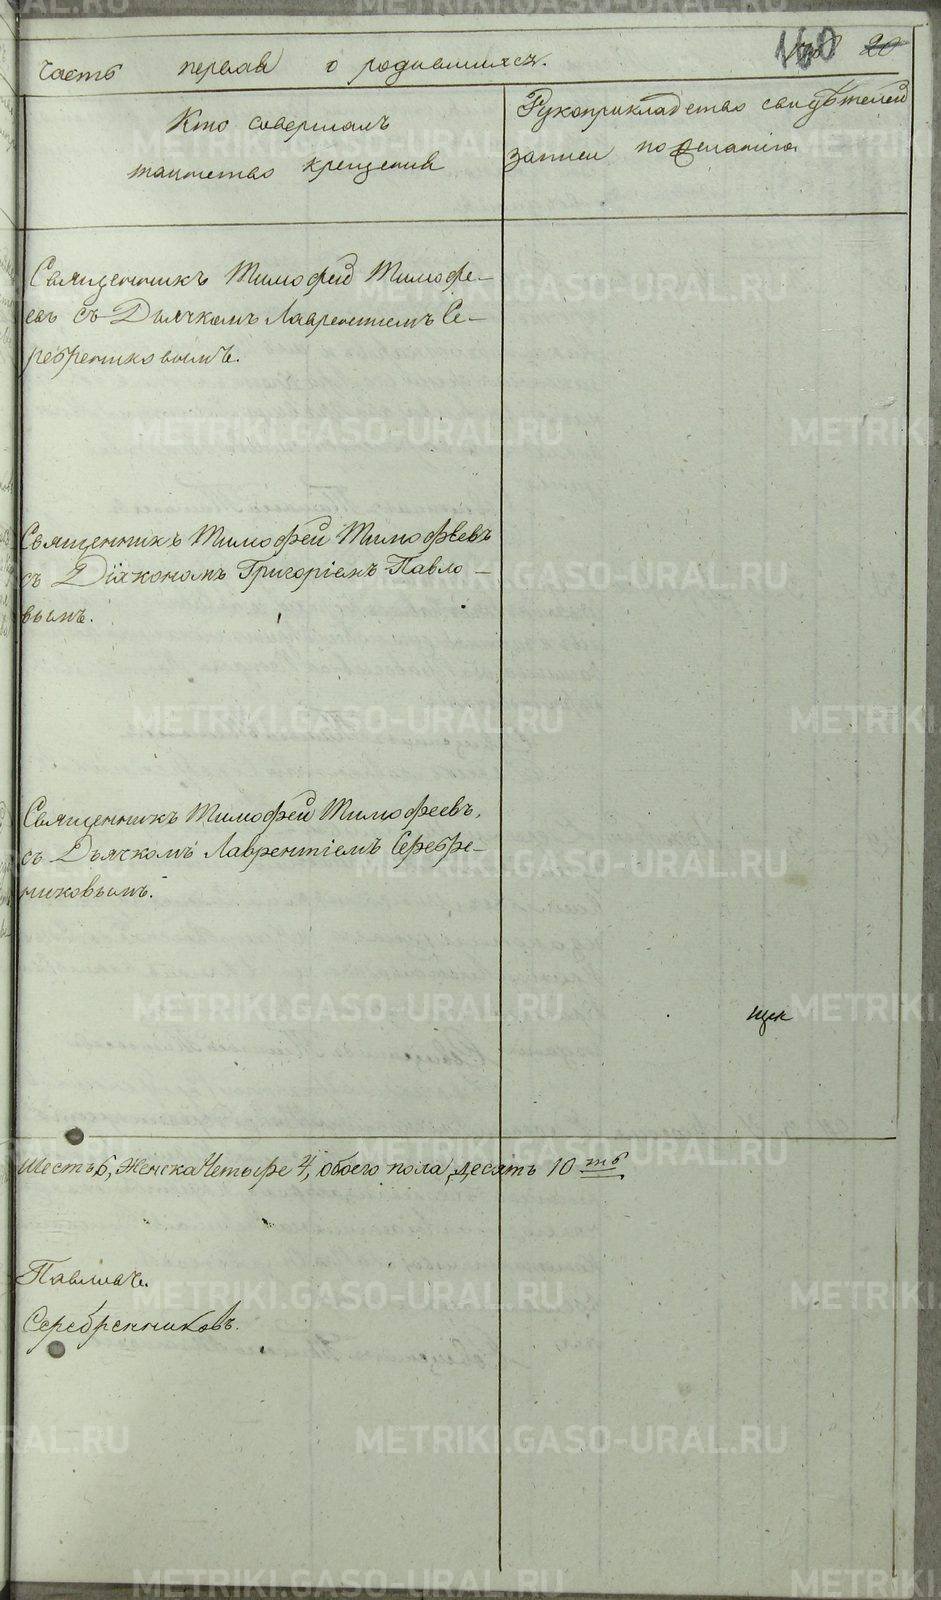 часть первая о родившихся.
160 20
Кто совершалъ
таинство крещения
Рукоприкладство свидѣтелей
записи по желанію
Священникъ Тимофей Тимофе-
евъ съ Дьячкомъ Лаврентіемъ Се-
ребрениковымъ.
Священникъ Тимофей Тимофѣевъ
съ Діакономъ Григоріемъ Павло-
вымъ.
Священникъ Тимофей Тимофеевъ,
съ Дьячкомъ Лаврентіемъ Серебре-
никовымъ.
Шесть 6, Женска Четыре 4, обоего пола десять 10
Павловъ.
Серебренниковъ.
METRIKI.GASO-URAL.RU